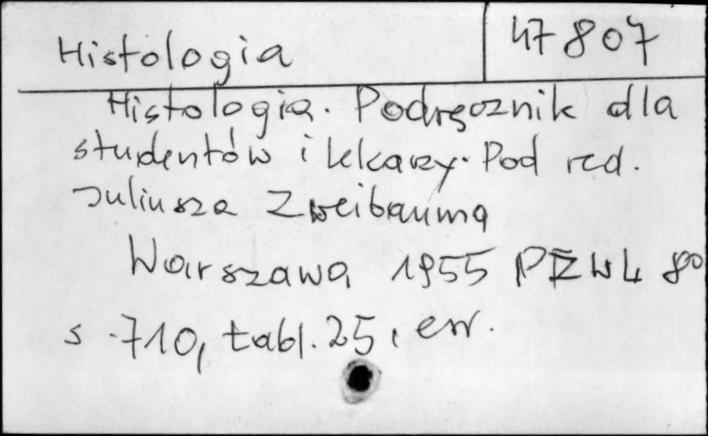 Histologia
47807
Histologia. Podręcznik dla
studentów i lekarzy. Pod red.
Juliusza Zweibauma
Warszawa 1955 PZWL 8°
s. 710, tabl. 25, err.